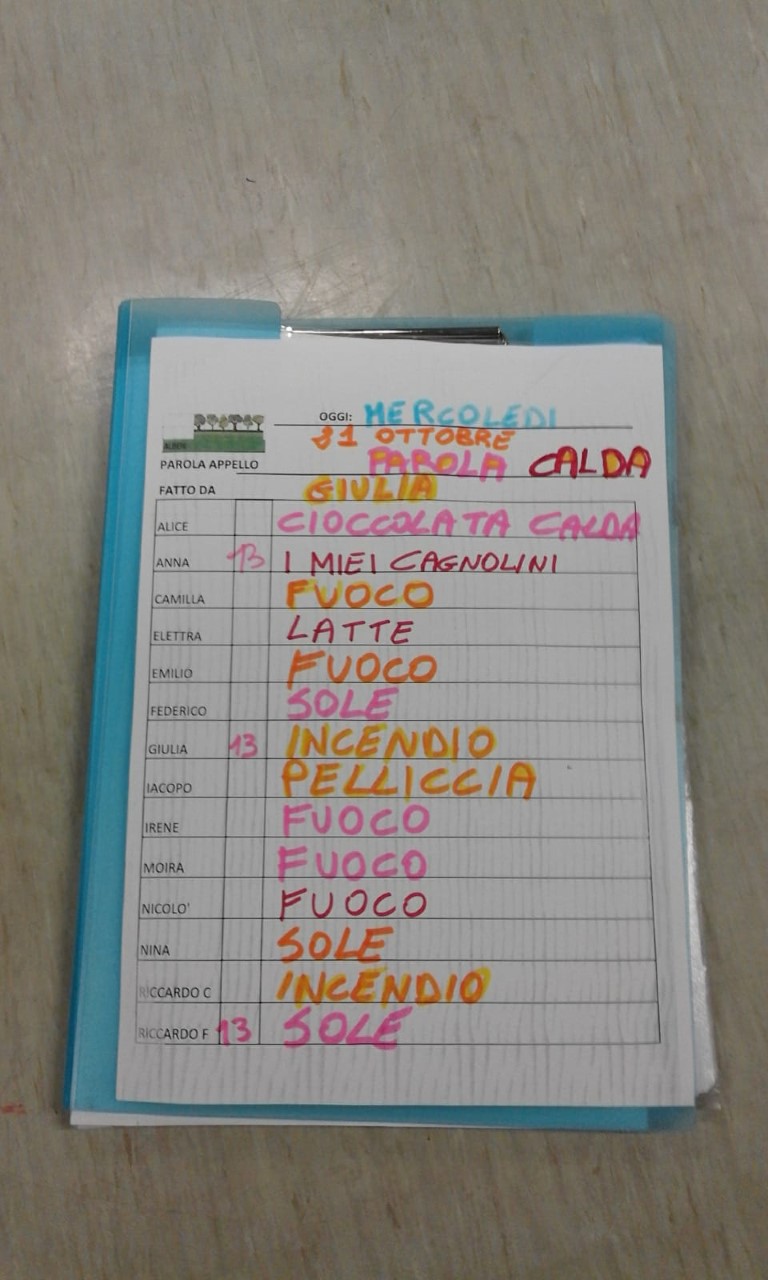 OGGI: MERCOLEDI
31 OTTOBRE
ALBERI
PAROLA APPELLO PAROLA CALDA
FATTO DA GIULIA
ALICE CIOCCOLATA CALDA
ANNA 13 I MIEI CAGNOLINI
CAMILLA FUOCO
ELETTRA LATTE
EMILIO FUOCO
FEDERICO SOLE
GIULIA 13 INCENDIO
IACOPO PELLICCIA
IRENE FUOCO
MOIRA FUOCO
NICOLO' FUOCO
NINA SOLE
RICCARDO C INCENDIO
RICCARDO F 13 SOLE